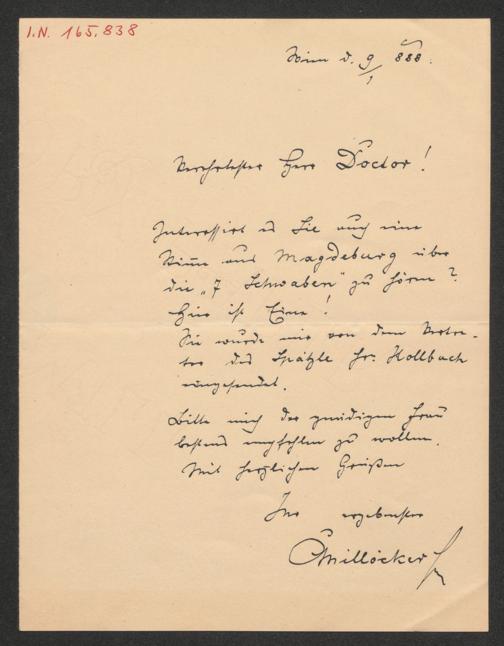 I.N. 165.838
Wien d. 9/1 888.
Verehrtester Herr Doctor!
Interessirt es Sie auch eine
Stimme aus Magdeburg über
die „7 Schwaben" zu hören?
Hier ist Eine!
Sie wurde mir von dem Vertre-
ter des Spätzle Hr. Hollbach
eingesendet.
Bitte mich der gnädigen Frau
bestens empfehlen zu wollen.
Mit herzlichen Grüßen
Ihr ergebenster
CMillöcker